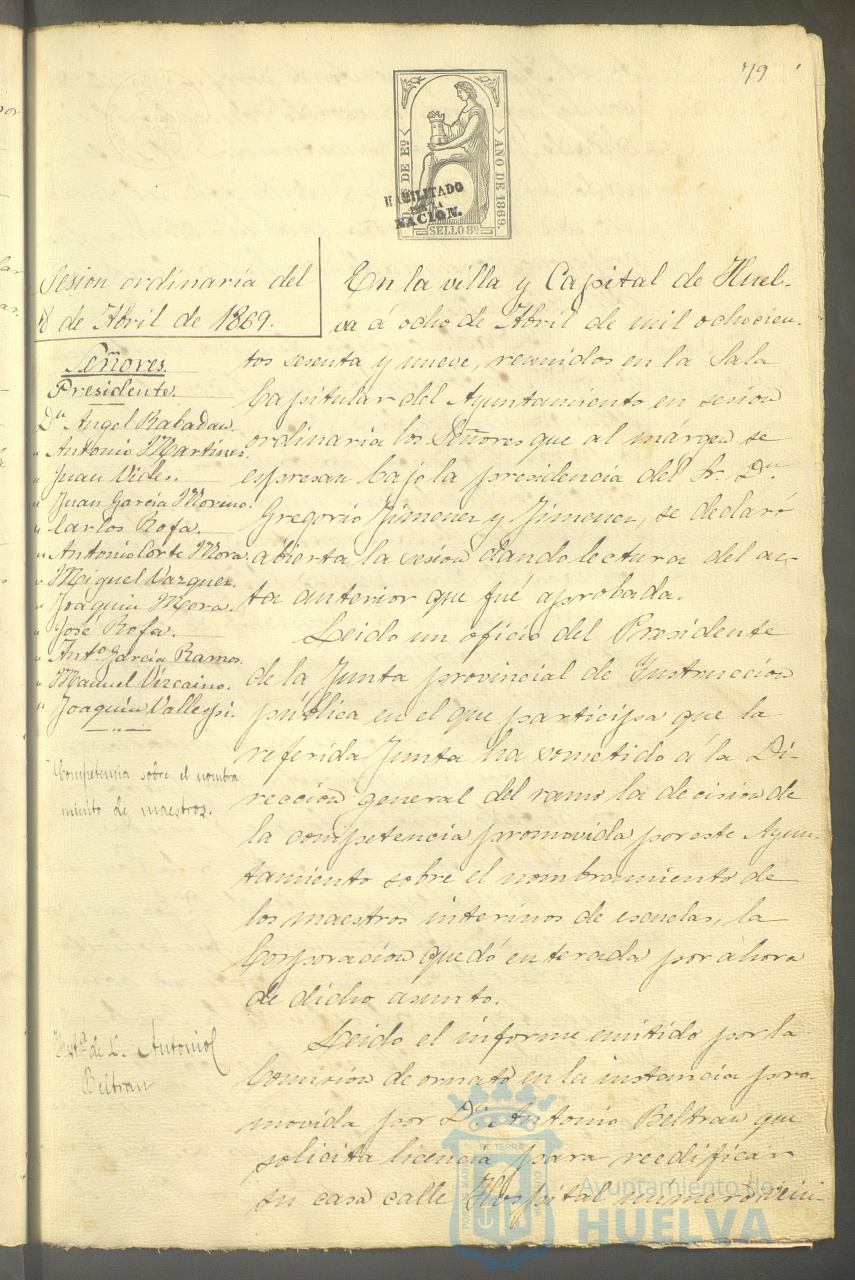 79
DE Eº
AÑO DE 1869.
HABILITADO
POR LA
NACION.
SELLO 8º
Sesion ordinaria del
8 de Abril de 1869.
Señores.
Presidente.
Dn Angel Rabadan.
" Antonio Martinez.
" Juan Vides.
" Juan Garcia Moreno.
" Carlos Rofa.
" Antonio Corte Mora.
" Miguel Vazquez.
" Joaquin Mora.
" José Rofa.
" Anto. Garcia Ramos.
" Manuel Vizcaino.
" Joaquin Vallespi.
Competencia sobre el nombra
miento de maestros.
Insta. de D. Antonio
Beltran
En la villa y Capital de Huel-
va á ocho de Abril de mil ochocien-
tos sesenta y nueve, reunidos en la Sala
Capitular del Ayuntamiento en sesion
ordinaria los Señores que al márgen se
espresan bajo la presidencia del Sr. Dn.
Gregorio Jimenez y Jimenez, se declaró
abierta la sesion dando lectura del ac-
ta anterior que fué aprobada.
Leido un oficio del Presidente
de la Junta provincial de Instruccion
publica en el que participa que la
referida Junta ha sometido á la Di-
reccion general del ramo la decision de
la competencia promovida por este Ayun-
tamiento sobre el nombramiento de
los maestros interinos de escuelas, la
Corporacion quedó enterada por ahora
de dicho asunto.
Leido el informe emitido por la
Comision de ornato en la instancia pro-
movida por Dn. Antonio Beltran que
solicita licencia para reedificar
su casa calle Hospital numero
Ayuntamiento de
HUELVA